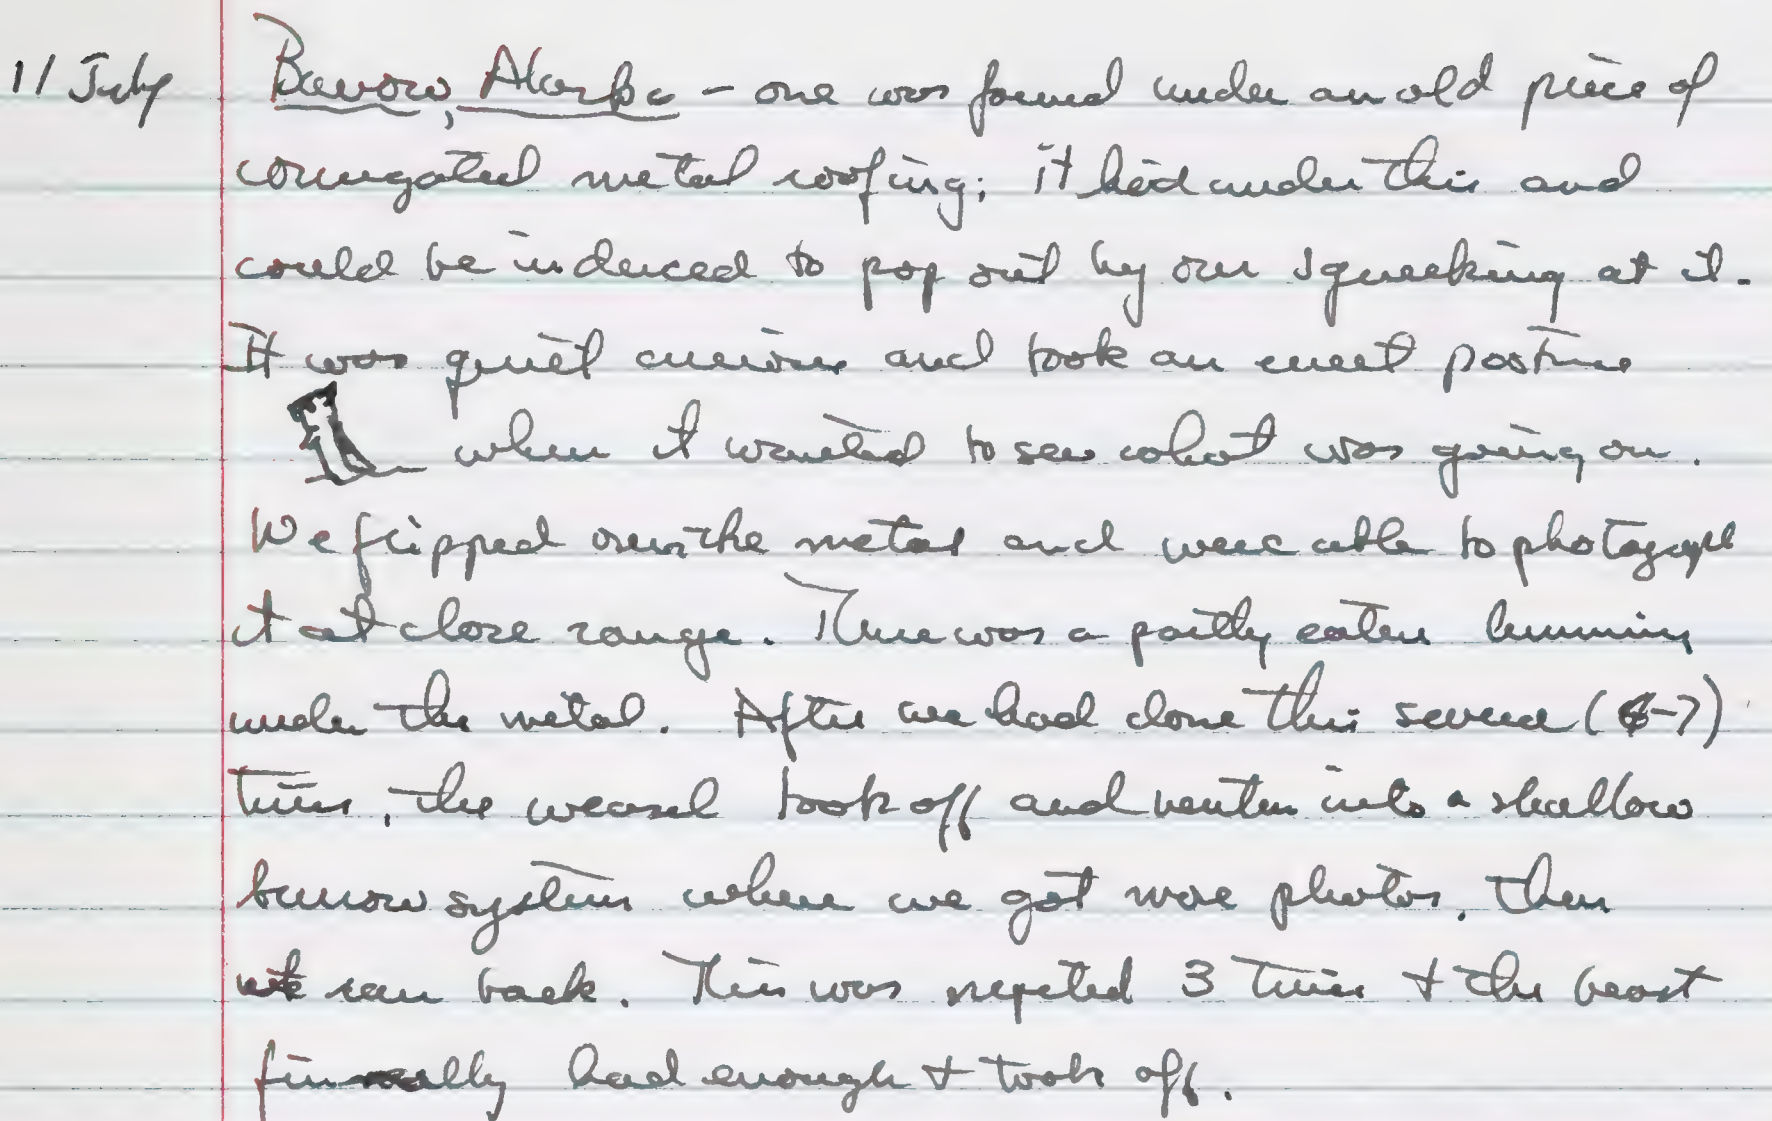 11 July Barrow, Alaska - one was found under an old piece of
corrugated metal roofing; it hid under this and
could be induced to pop out by our squeeking at it.
It was quiet curious and took an erect posture
when it wanted to see what was going on.
We flipped over the metal and were able to photograph
it at close range. There was a partly eaten lemming
under the metal. After we had done this several (6-7)
times, the weasel took off and went into a shallow
burrow system where we got more photos, then
it ran back. This was repeted 3 times + the beast
finally had enough + took off.